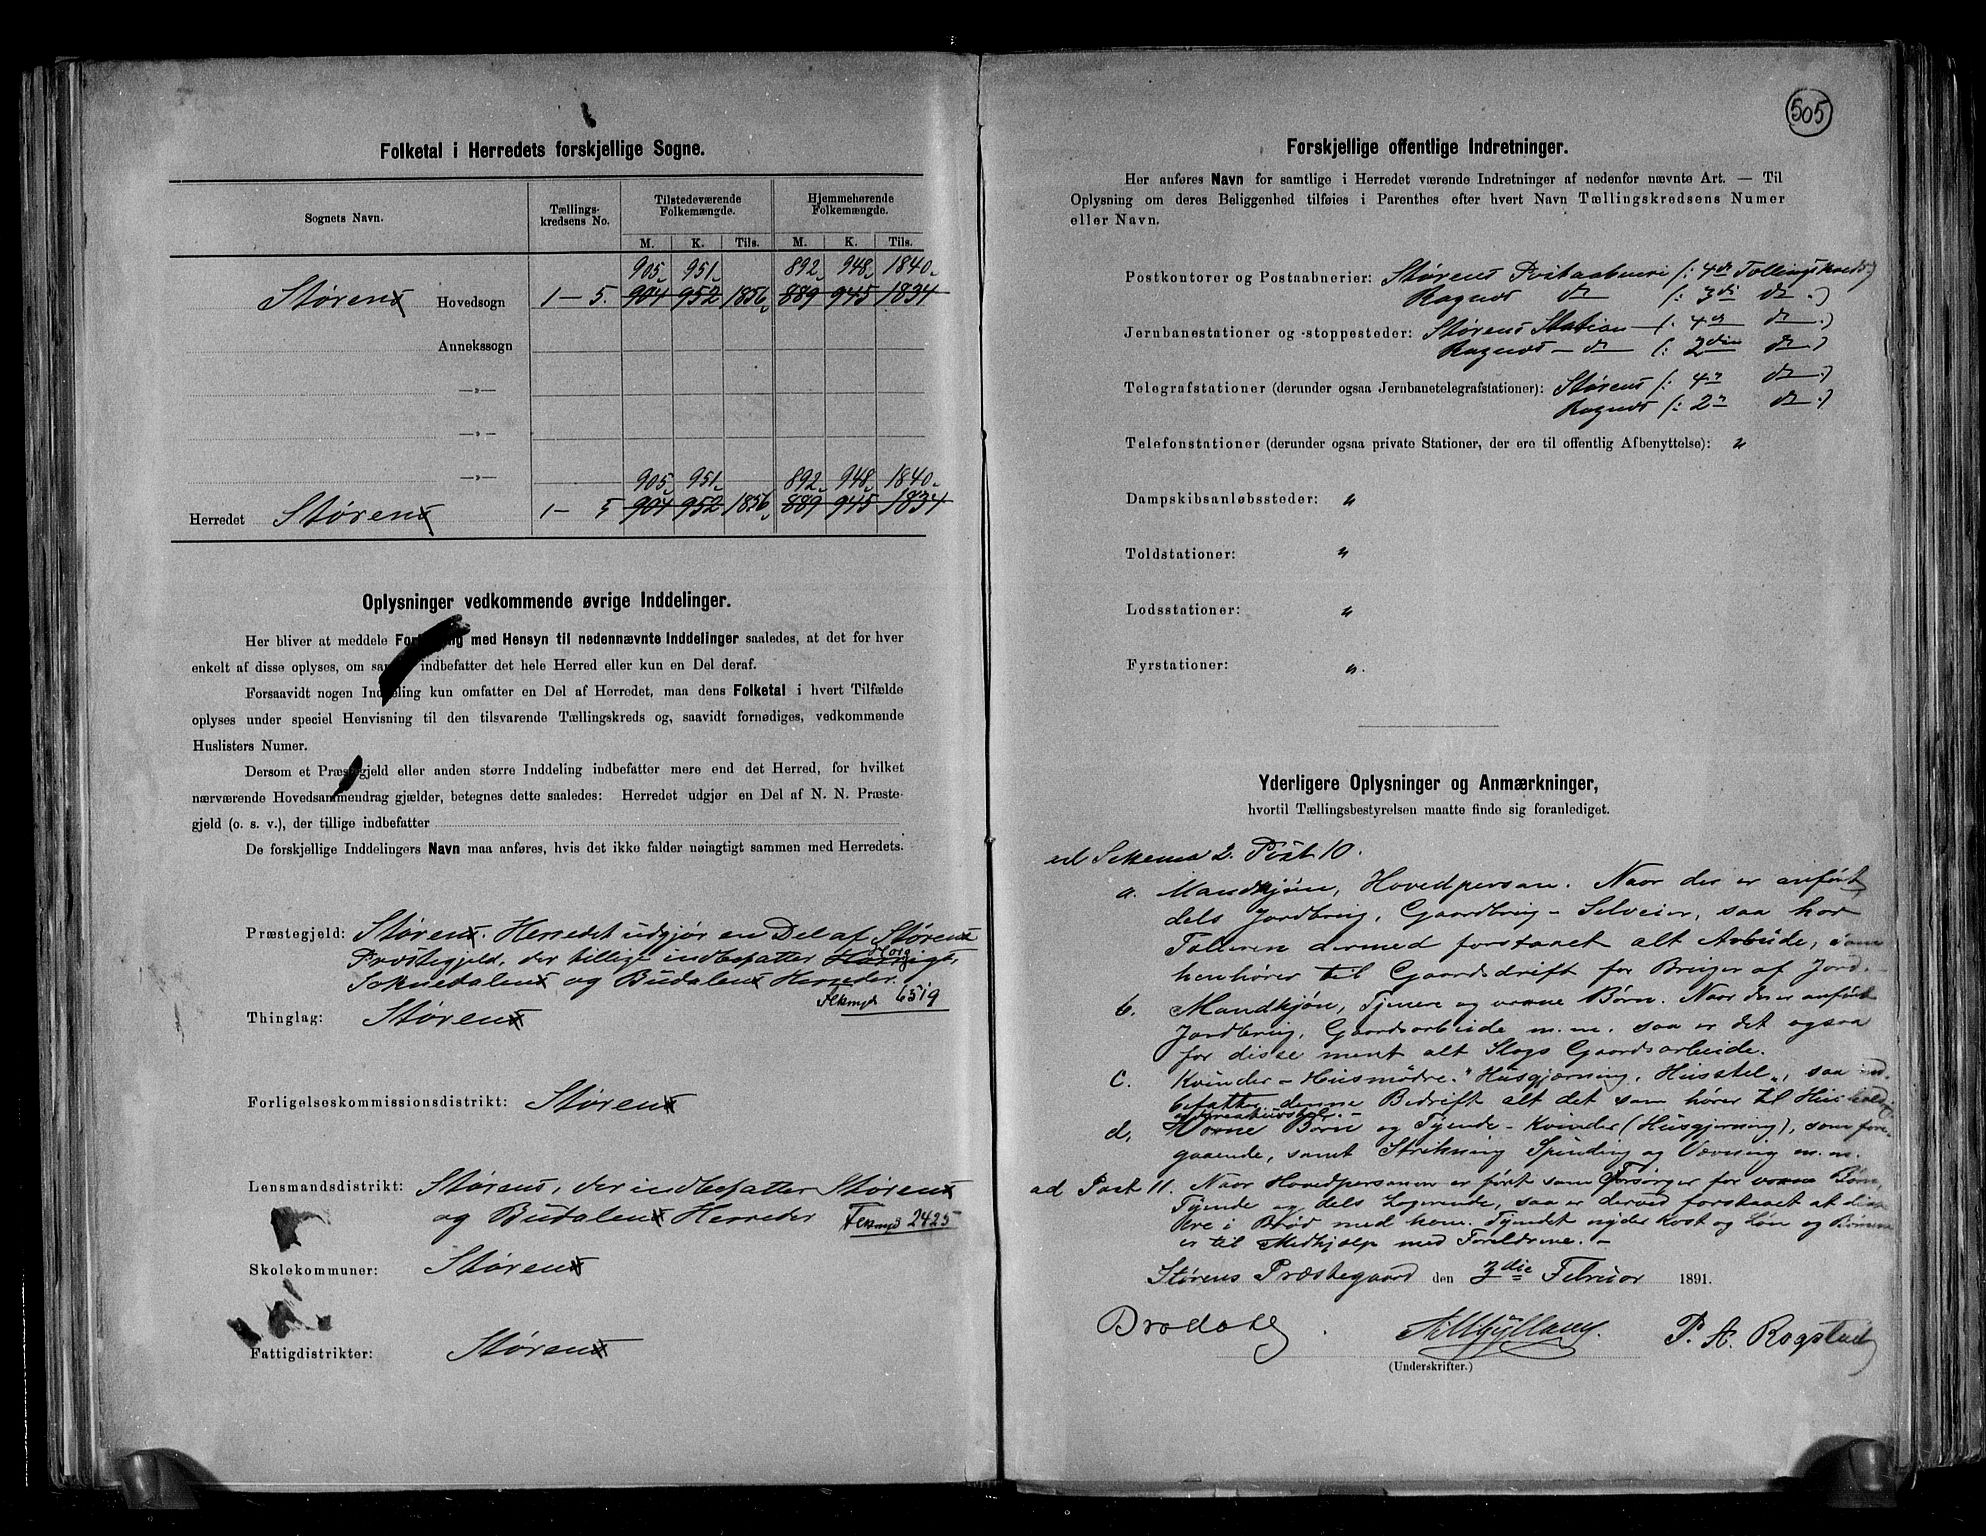 Folketal i Herredets forskjellige Sogne.
Sognets Navn. Tællingskredsens No. Tilstedeværende Folkemængde. Hjemmehørende Folkemængde.
M. K. Tils. M. K. Tils.
905 951 892 948 1840
Størens Hovedsogn 1-5. 904 952 1856 889 945 1834
Annekssogn
—»—
—»—
—»—
905 951 892 948 1840
Herredet Størens 1-5 904 952 1856 889 945 1834
Oplysninger vedkommende øvrige Inddelinger.
Her bliver at meddele med Hensyn til nedennævnte Inddelinger saaledes, at det for hver
enkelt af disse oplyses, om indbefatter det hele Herred eller kun en Del deraf.
Forsaavidt nogen Inddeling kun omfatter en Del af Herredet, maa dens Folketal i hvert Tilfælde
oplyses under speciel Henvisning til den tilsvarende Tællingskreds og, saavidt fornødiges, vedkommende
Huslisters Numer.
Dersom et Præstegjeld eller anden større Inddeling indbefatter mere end det Herred, for hvilket
nærværende Hovedsammendrag gjælder, betegnes dette saaledes: Herredet udgjør en Del af N. N. Præste-
gjeld (o. s. v.), der tillige indbefatter
De forskjellige Inddelingers Navn maa anføres, hvis det ikke falder nøiagtigt sammen med Herredets.
Præstegjeld: Størens. Herredet udgjør en Del af Størens
Horg
Præstegjeld, der tillige indbefatter
Soknedalens og Budalens Herreder.
Flkmgd 6519
Thinglag: Størens
Forligelseskommissionsdistrikt: Størens
Lensmandsdistrikt: Størens, der indbefatter Størens
og Budalens Herreder Flkmgd 2425
Skolekommuner: Størens
Fattigdistrikter: Størens
505
Forskjellige offentlige Indretninger.
Her anføres Navn for samtlige i Herredet værende Indretninger af nedenfor nævnte Art. — Til
Oplysning om deres Beliggenhed tilføies i Parenthes efter hvert Navn Tællingskredsens Numer
eller Navn.
Postkontorer og Postaabnerier: Størens Postaabneri (: 4de Tællingskreds :)
Rognes do (: 3die do :)
Jernbanestationer og -stoppesteder: Størens Station (: 4de do :)
Rognes — do (: 2den do :)
Telegrafstationer (derunder ogsaa Jernbanetelegrafstationer): Størens (: 4 do :)
Rognes (: 2 do :)
Telefonstationer (derunder ogsaa private Stationer, der ere til offentlig Afbenyttelse): "
Dampskibsanløbssteder: "
Toldstationer: "
Lodsstationer: "
Fyrstationer: "
Yderligere Oplysninger og Anmærkninger,
hvortil Tællingsbestyrelsen maatte finde sig foranlediget.
ad Schema 2. Post 10.
a. Mandkjøn, Hovedperson. Naar der er anført
dels Jordbrug, Gaardbrug – Selveier, saa har
Tælleren dermed forstaaet alt Arbeide, som
henhører til Gaardsdrift for Bruger af Jord.
b. Mandkjøn, Tjenere og voxne Børn. Naar der er anført
Jordbrug, Gaardsarbeide m.m. saa er det ogsaa
for disse ment alt Slags Gaardsarbeide.
c. Kvinder – Husmødre. "Husgjerning, Husstel", saa ind-
befatter denne Bedrift alt det som hører til Husholdng
d. Voxne Børn og Tjende – Kvinder (Husgjerning), som fore-
gaaende, samt Strikning Spinding og Vævning m. m.
ad Post 11. Naar Hovedpersonen er ført som Forsørger for voxne Børn,
Tjende og dels Logerende, saa er derved forstaaet at disse
ere i Brød med ham. Tjendet nyder Kost og Løn og Børnene
er til Medhjælp med Forældrene. –
Størens Præstegaard den 3die Februar 1891.
P. A. Rogstad
(Underskrifter.)